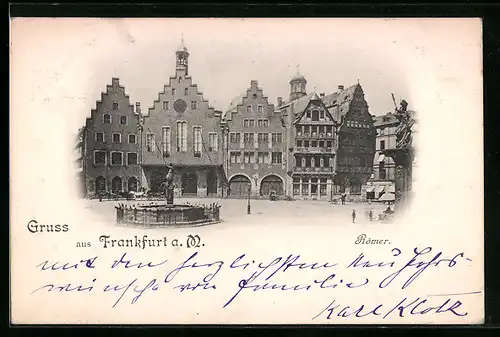 Gruss
aus Frankfurt a. M.
Römer.
mit den herzlichsten Neujahrs-
wünschen von Familie
Karl Klotz